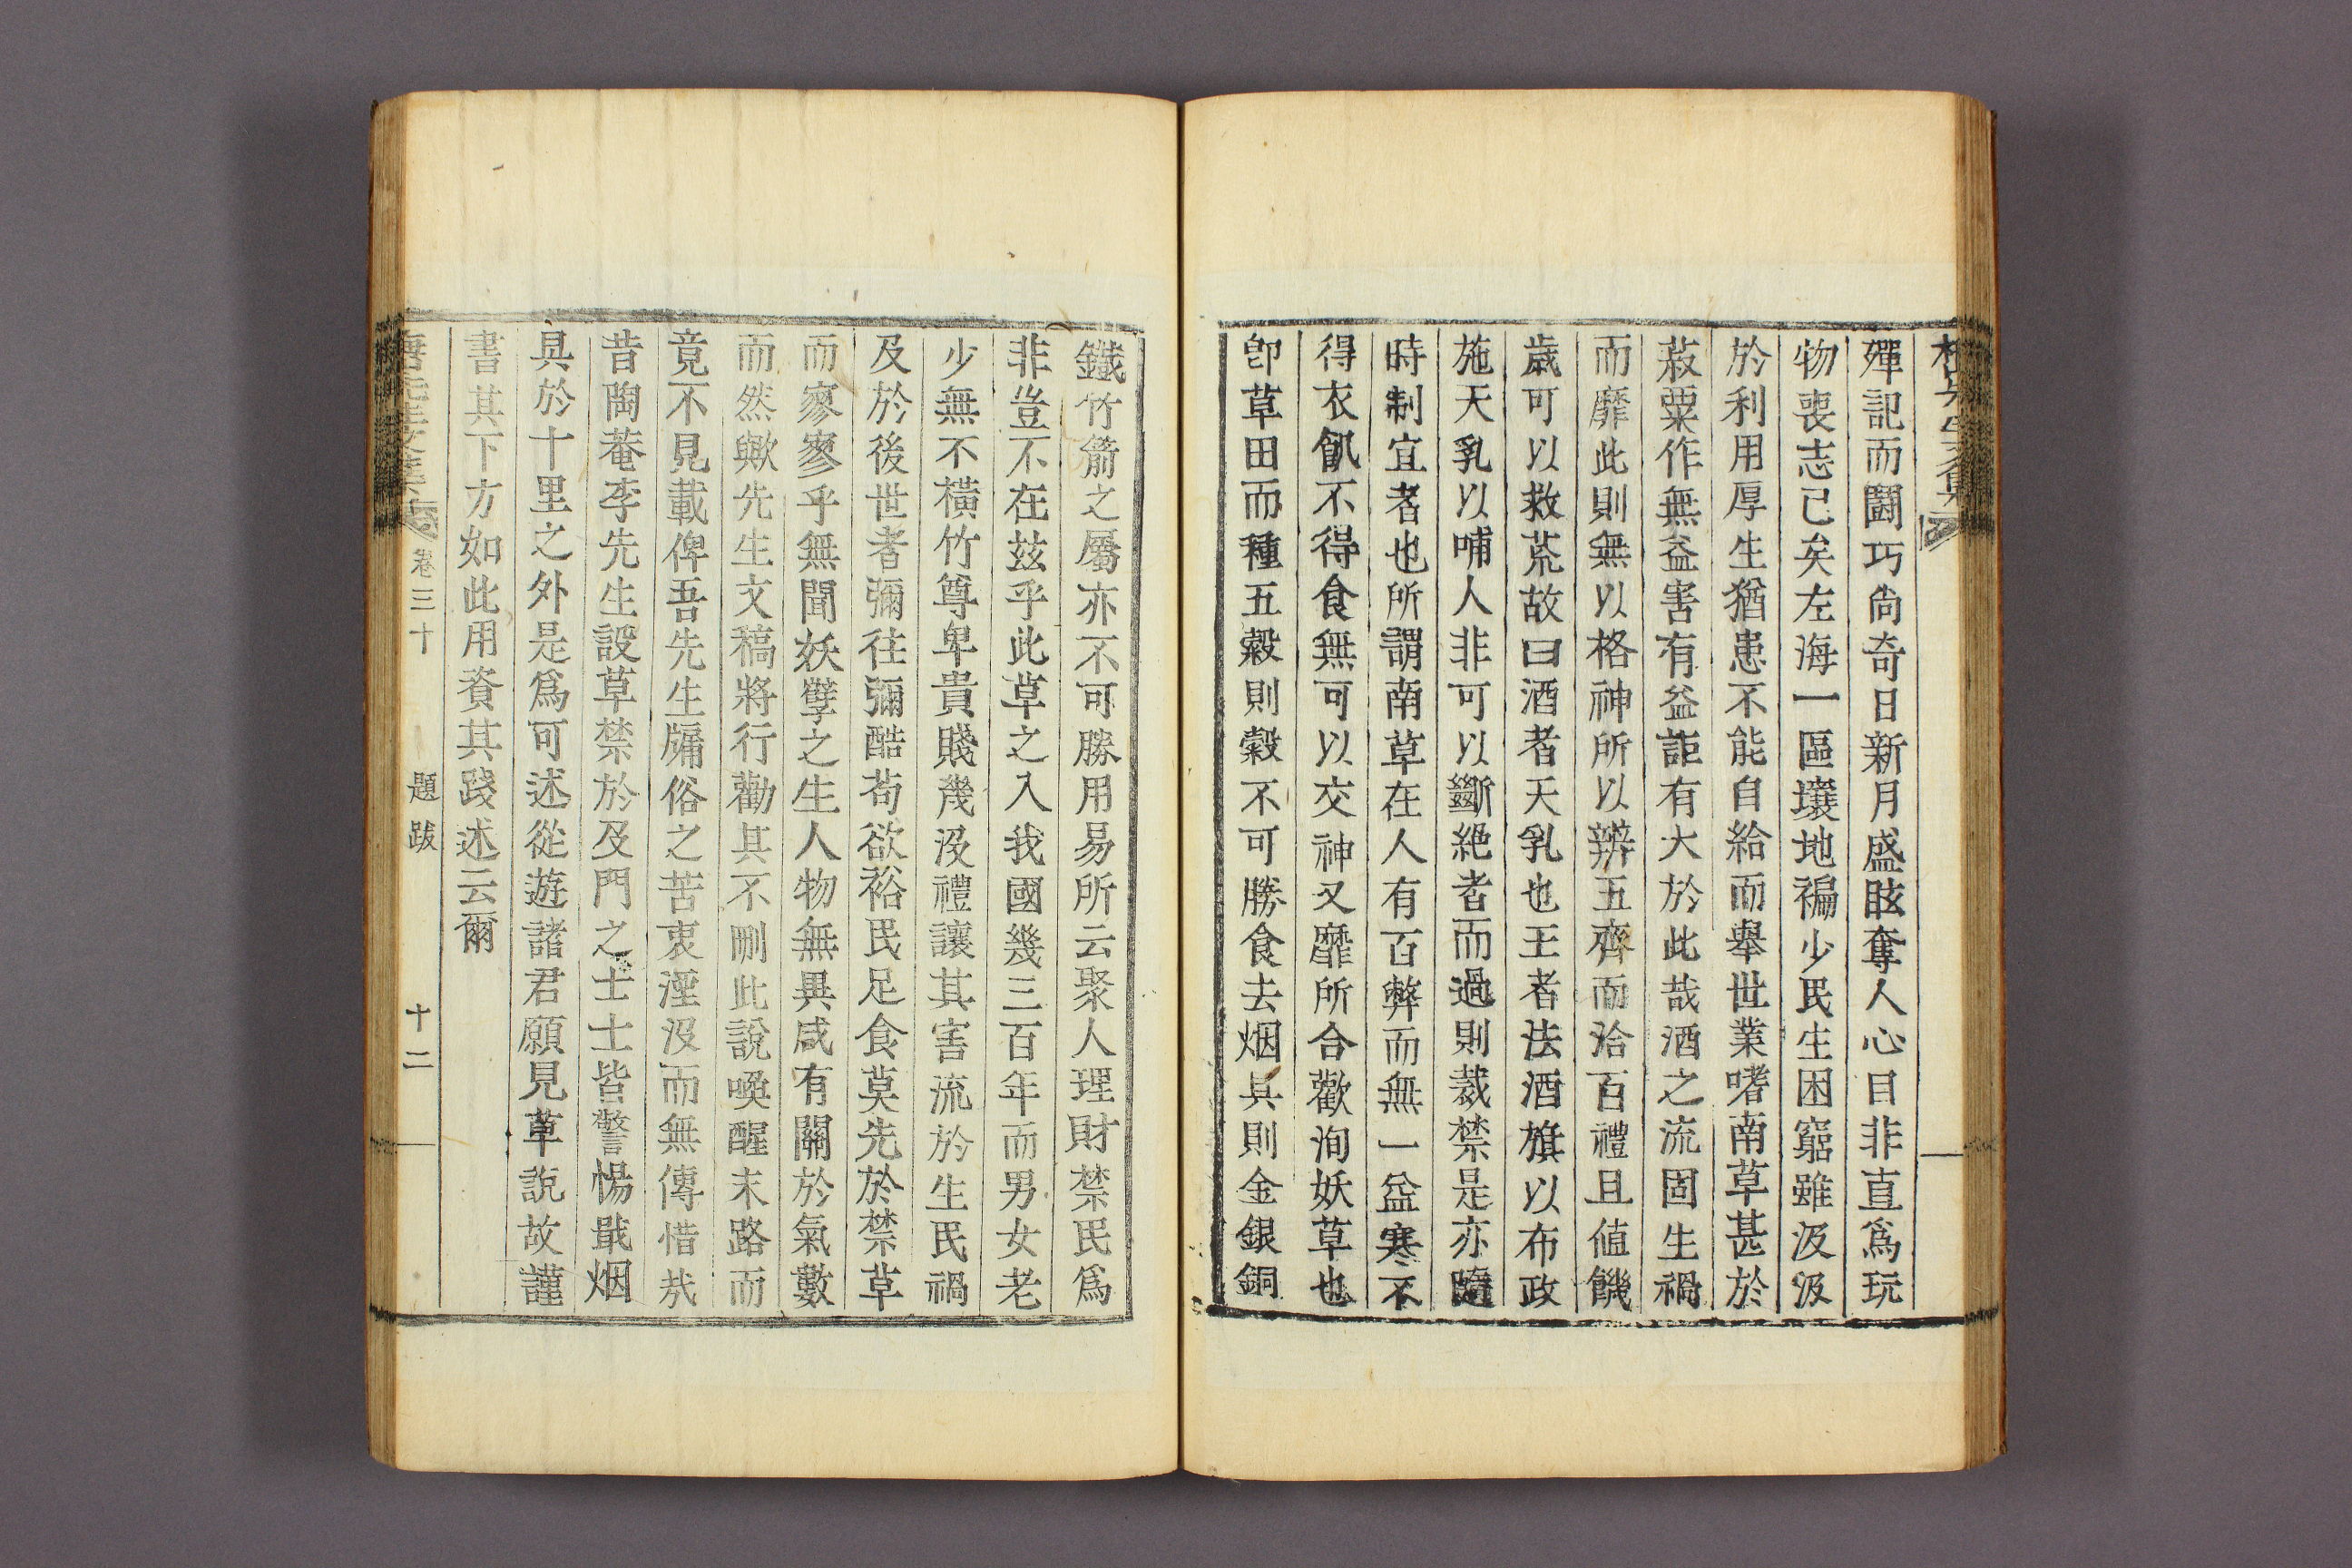 殫記而鬪巧尙奇日新月盛眩奪人心目非直爲玩
物喪志已矣左海一區壤地褊少民生困窮雖汲汲
於利用厚生猶患不能自給而擧世業嗜南草甚於
菽粟作無益害有益詎有大於此哉酒之流固生禍
而靡此則無以格神所以辨五齊而洽百禮且値饑
歲可以救荒故曰酒者天乳也王者法酒旗以布政
施天乳以哺人非可以斷絶者而過則裁禁是亦隨
時制宜者也所謂南草在人有百弊而無一益寒不
得衣飢不得食無可以交神又靡所合歡洵妖草也
卽草田而種五穀則穀不可勝食去烟具則金銀銅
鐵竹箭之屬亦不可勝用易所云聚人理財禁民爲
非豈不在玆乎此草之入我國幾三百年而男女老
少無不橫竹尊卑貴賤蔑沒禮讓其害流於生民禍
及於後世者彌往彌酷苟欲裕民足食莫先於禁草
而寥寥乎無聞妖孼之生人物無異咸有關於氣數
而然歟先生文稿將行勸其不刪此說喚醒末路而
竟不見載俾吾先生牖俗之苦衷湮沒而無傳惜㢤
昔陶菴李先生設草禁於及門之士士皆警惕戢烟
具於十里之外是爲可述從遊諸君願見草說故謹
書其下方如此用資其踐述云爾
先生文集 卷三十 題跋 十二